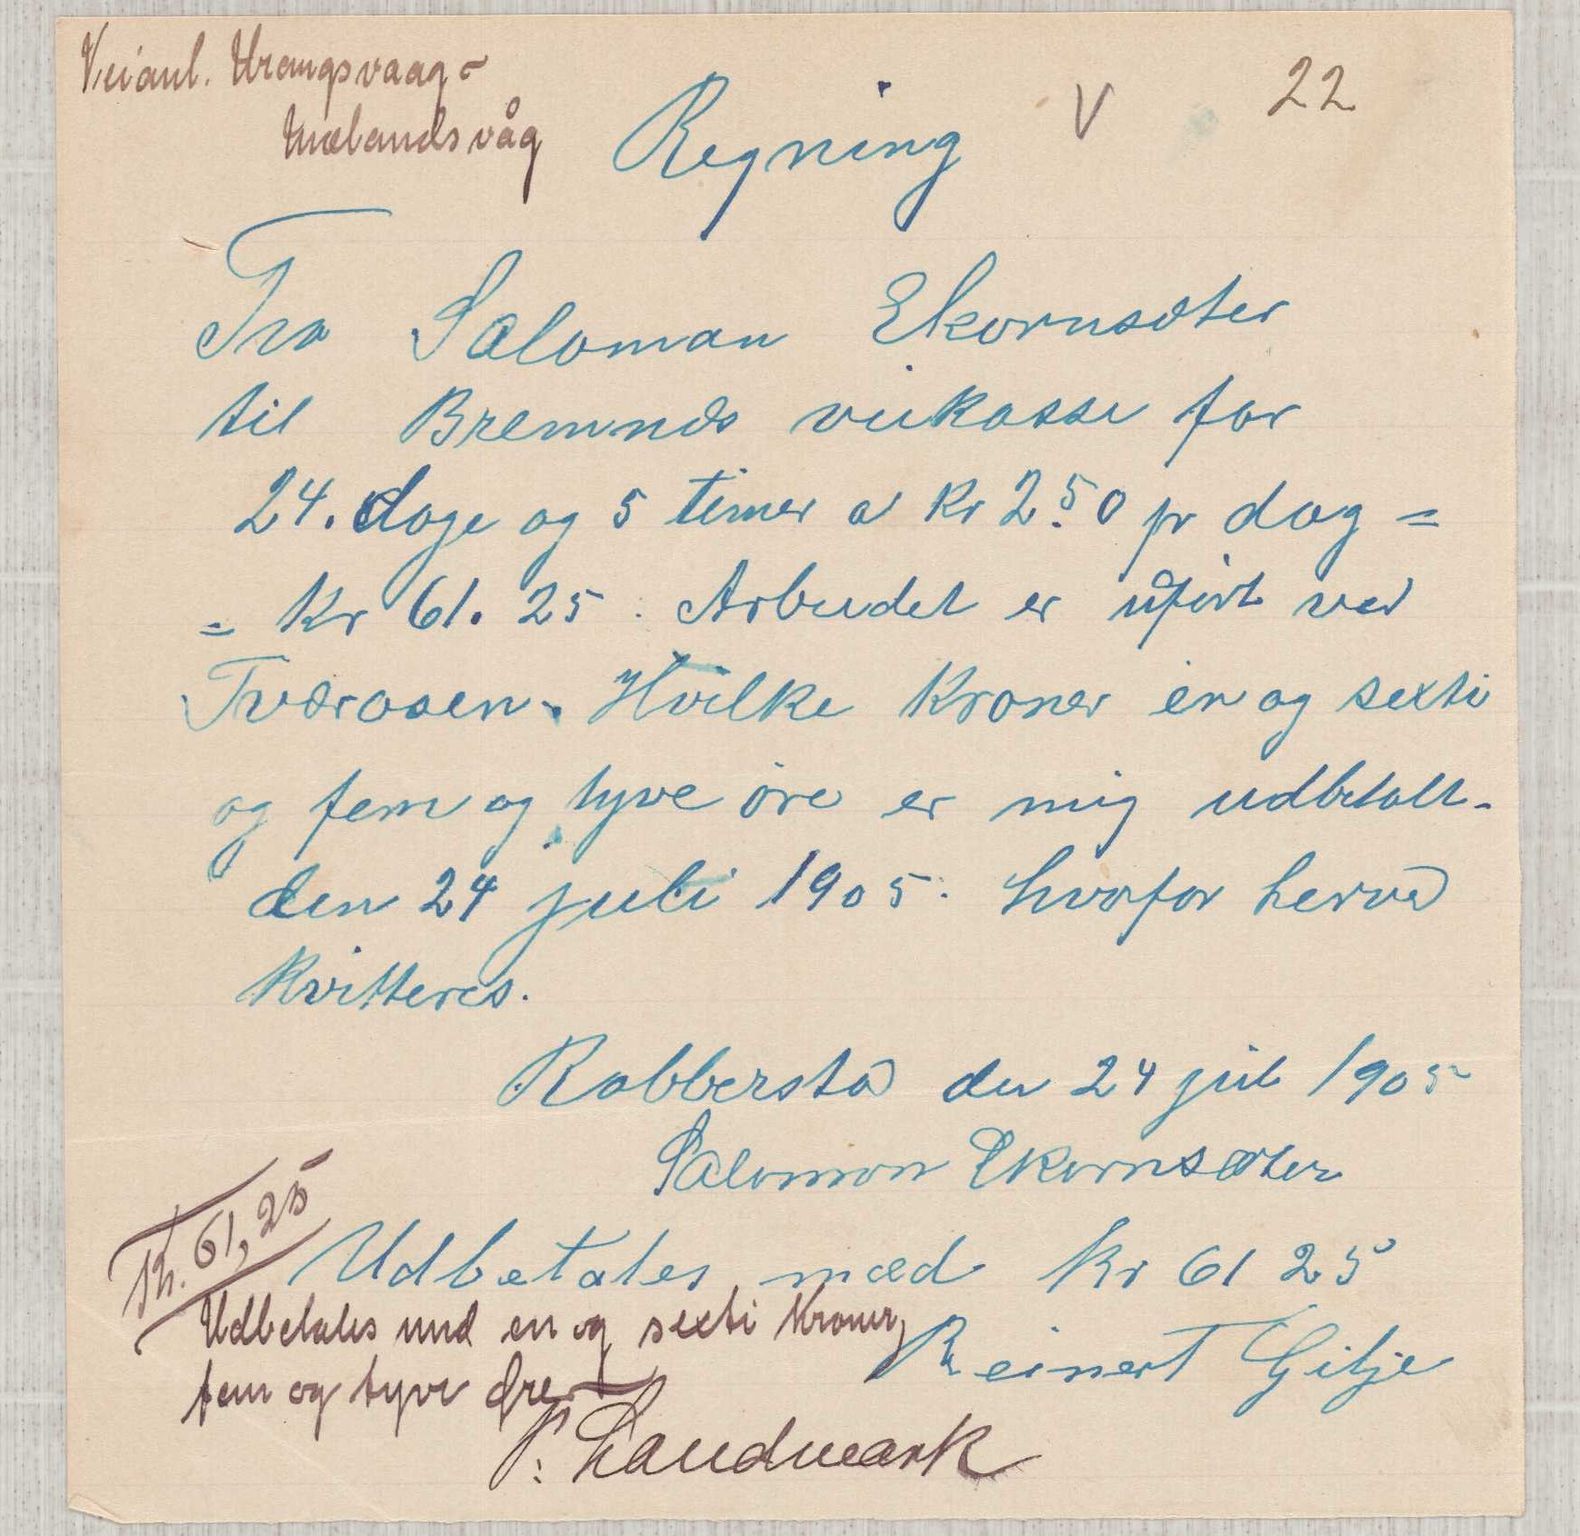 Veianl. Urangsvaag -
Mælandsvåg
Regning
V
22
Fra Saloman Ekornsæter
til Bremnæs veikasse for
24. dage og 5 timer a kr 2.50 pr dag =
= kr 61. 25. Arbeidet er uført ved
Tværaasen. Hvilke Kroner en og sexti
og fem og tyve öre er mig udbetalt -
den 24 juli 1905. hvorfor herved
kvitteres.
Robberstad den 24 juli 1905
Salomon Ekornsæter
Kr. 61,25
Udbetales med kr 61 25
Reinert Gilje
Udbetales med en og sexti Kroner,
fem og tyve Øre
P. Landmark